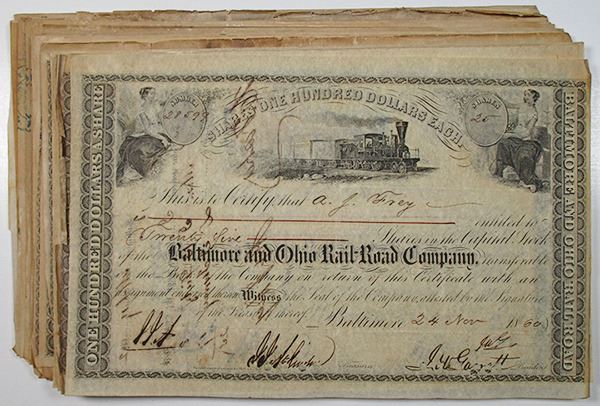 ONE HUNDRED DOLLARS A SHARE
BALTIMORE AND OHIO RAIL-ROAD
SHARES ONE HUNDRED DOLLARS EACH.
SHARES
SHARES
25
This is to Certify that A. J. Frey
is entitled to
Twenty five Shares in the Capital Stock
of the Baltimore and Ohio Rail-Road Company, transferable
on the Books of the Company on return of this Certificate with an
assignment endorsed thereon. Witness the Seal of the Company, attested by the Signature
of the Treasurer thereof. Baltimore 24 Nov 1860
Treasurer
President